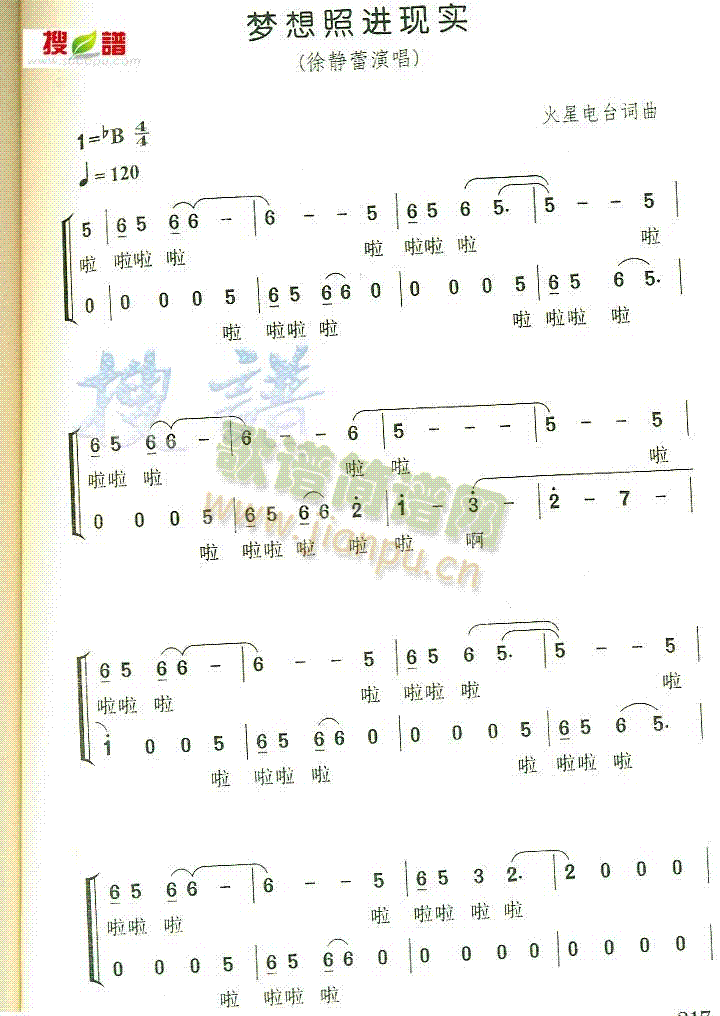 搜譜
www.sooopu.com
梦想照进现实
(徐静蕾演唱)
火星电台词曲
1=♭B 4/4
♩=120
5 | 6 5 6 6 - | 6 - - 5 | 6 5 6 5. | 5 - - 5 |
啦 啦啦 啦 啦 啦啦 啦 啦
0 | 0 0 0 5 | 6 5 6 6 0 | 0 0 0 5 | 6 5 6 5. |
啦 啦啦 啦 啦 啦啦 啦
搜譜
6 5 6 6 - | 6 - - 6 | 5 - - - | 5 - - 5 |
啦啦 啦 啦 啦 啦
歌谱简谱网
0 0 0 5 | 6 5 6 6 2̇ | 1̇ - 3̇ - | 2̇ - 7 - |
www.jianpu.cn
啦 啦啦 啦 啦 啦 啊
6 5 6 6 - | 6 - - 5 | 6 5 6 5. | 5 - - 5 |
啦啦 啦 啦 啦啦 啦 啦
1̇ 0 0 5 | 6 5 6 6 0 | 0 0 0 5 | 6 5 6 5. |
啦 啦啦 啦 啦 啦啦 啦
6 5 6 6 - | 6 - - 5 | 6 5 3 2. | 2 0 0 0 |
啦啦 啦 啦 啦啦 啦 啦
0 0 0 5 | 6 5 6 6 0 | 0 0 0 0 | 0 0 0 0 |
啦 啦啦 啦